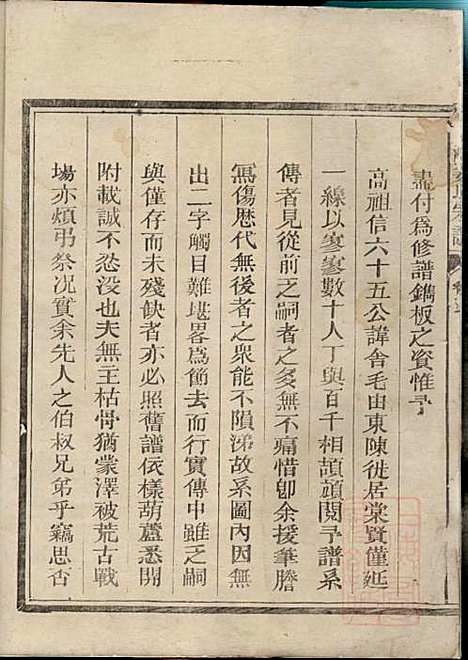 盡付爲修譜鐫板之資惟予
高祖信六十五公諱舍毛由東陳徙居棠賢僅延
一線以寥寥數十人丁與百千相頡頏閱予譜系
傳者見從前之嗣者之多無不痛惜卽余援筆謄
寫傷歷代無後者之衆能不隕涕故系圖內因無
出二字觸目難堪畧爲節去而行實傳中雖乏嗣
與僅存而未殘缺者亦必照舊譜依樣葫蘆悉開
附載誠不忍没也夫無主枯骨猶蒙澤被荒古戰
場亦煩弔祭况實余先人之伯叔兄弟乎竊思否